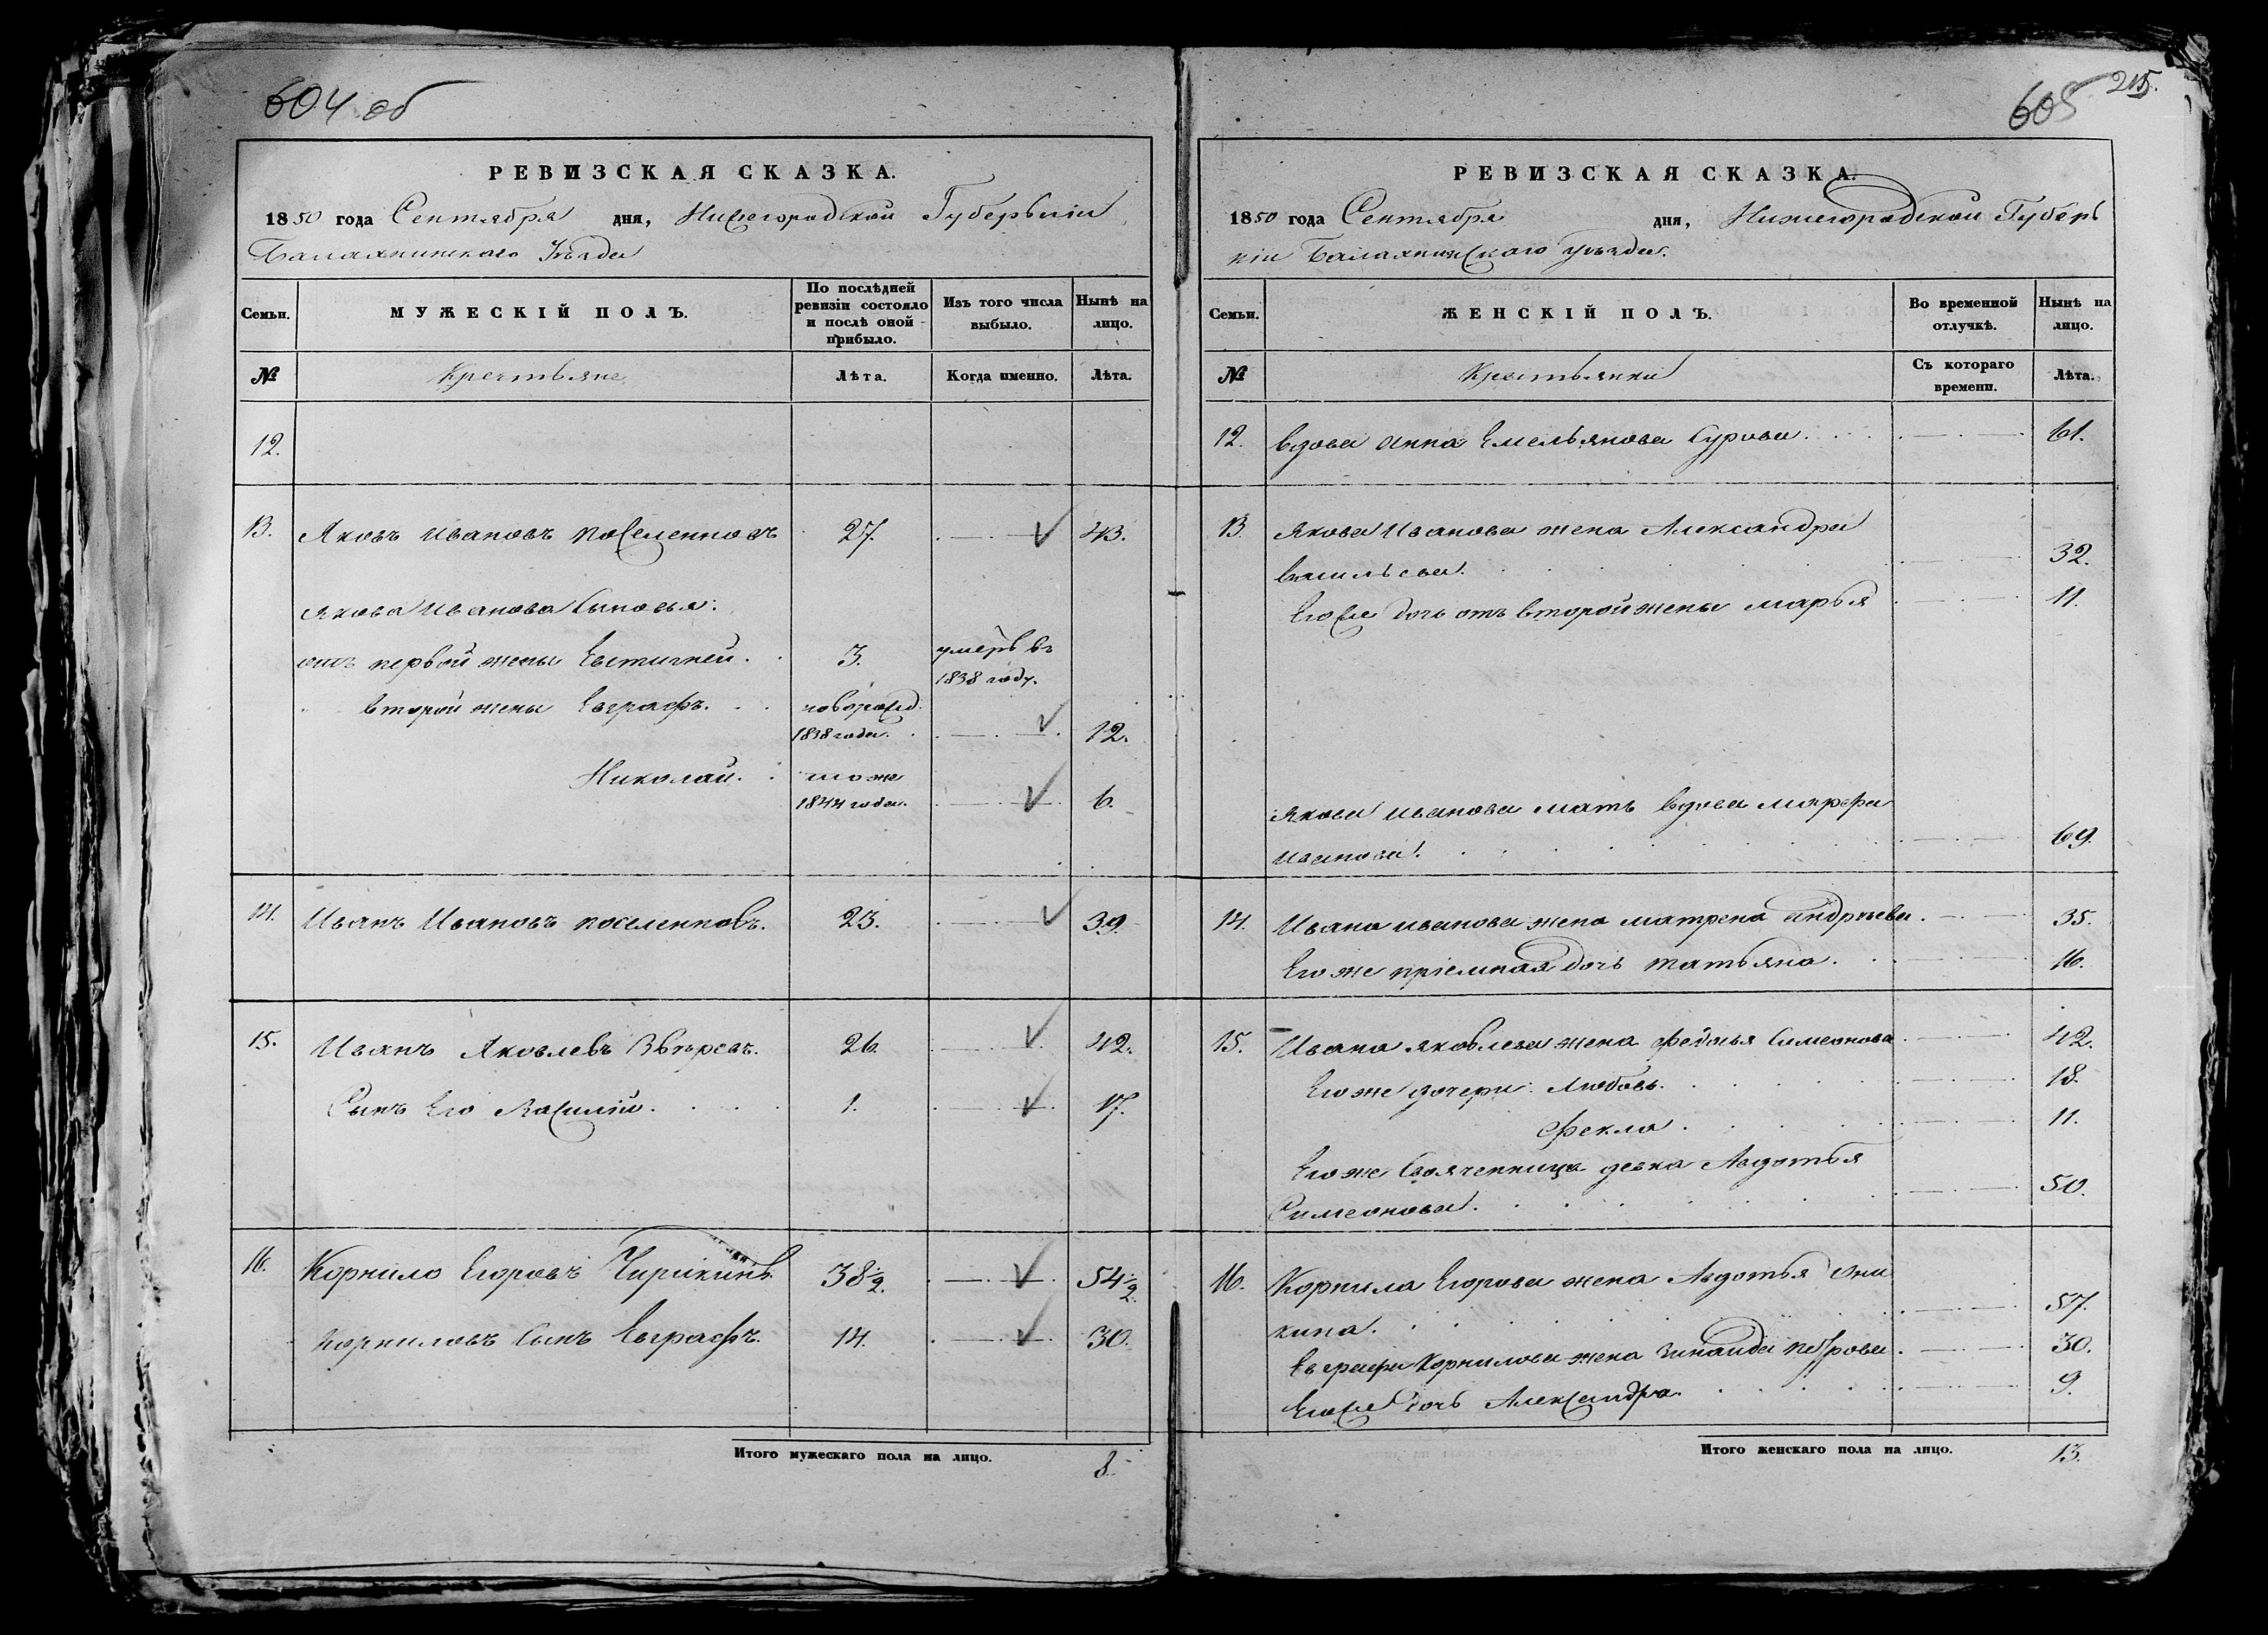 604 об
РЕВИЗСКАЯ СКАЗКА.
1850 года Сентября дня, Нижегородской Губерніи
Балахнинскаго Уѣзда
Семьи. МУЖЕСКІЙ ПОЛЪ. По послѣдней ревизіи состояло и послѣ оной прибыло. Изъ того числа выбыло. Нынѣ на лицо.
№ Крестьяне Лѣта. Когда именно. Лѣта.
12.
13. Яковъ Ивановъ Поселенновъ 27. 43.
Якова Иванова Сыновья:
отъ первой жены Евстигней. 3. умеръ въ
1838 году.
второй жены Евграфъ. новорожд.
1838 года. 12.
Николай. тоже
1844 года. 6.
14. Иванъ Ивановъ поселенновъ. 23. 39.
15. Иванъ Яковлевъ Звѣревъ. 26. 42.
Сынъ Его Василій. 1. 17.
16. Корнило Егоровъ Чирикинъ 38½. 54½.
Корниловъ Сынъ Евграфъ. 14. 30.
Итого мужескаго пола на лицо. 8.
605 215.
РЕВИЗСКАЯ СКАЗКА.
1850 года Сентября дня, Нижегородской Губер
ніи Балахнинскаго уѣзда.
Семьи. ЖЕНСКІЙ ПОЛЪ. Во временной отлучкѣ. Нынѣ на лицо.
№ Крестьянки Съ котораго времени. Лѣта.
12. Вдова Анна Емельянова Сурова. 61.
13. Якова Иванова жена Александра
Васильева. 32.
Егоже дочь отъ второй жены Марья 11.
Якова Иванова мать вдова Марфа
Иванова. 69.
14. Ивана Иванова жена Матрена Андрѣева. 35.
Его же пріемная дочь Татьяна. 16.
15. Ивана Яковлева жена Федосья Симеонова 42.
Его же дочери: Любовь. 18.
Фекла. 11.
Его же Свояченница девка Авдотья
Симеонова. 50.
16. Корнила Егорова жена Авдотья Они
кина. 57.
Евграфа Корнилова жена Зинаида Петрова. 30.
Егоже дочь Александра. 9.
Итого женскаго пола на лицо. 13.